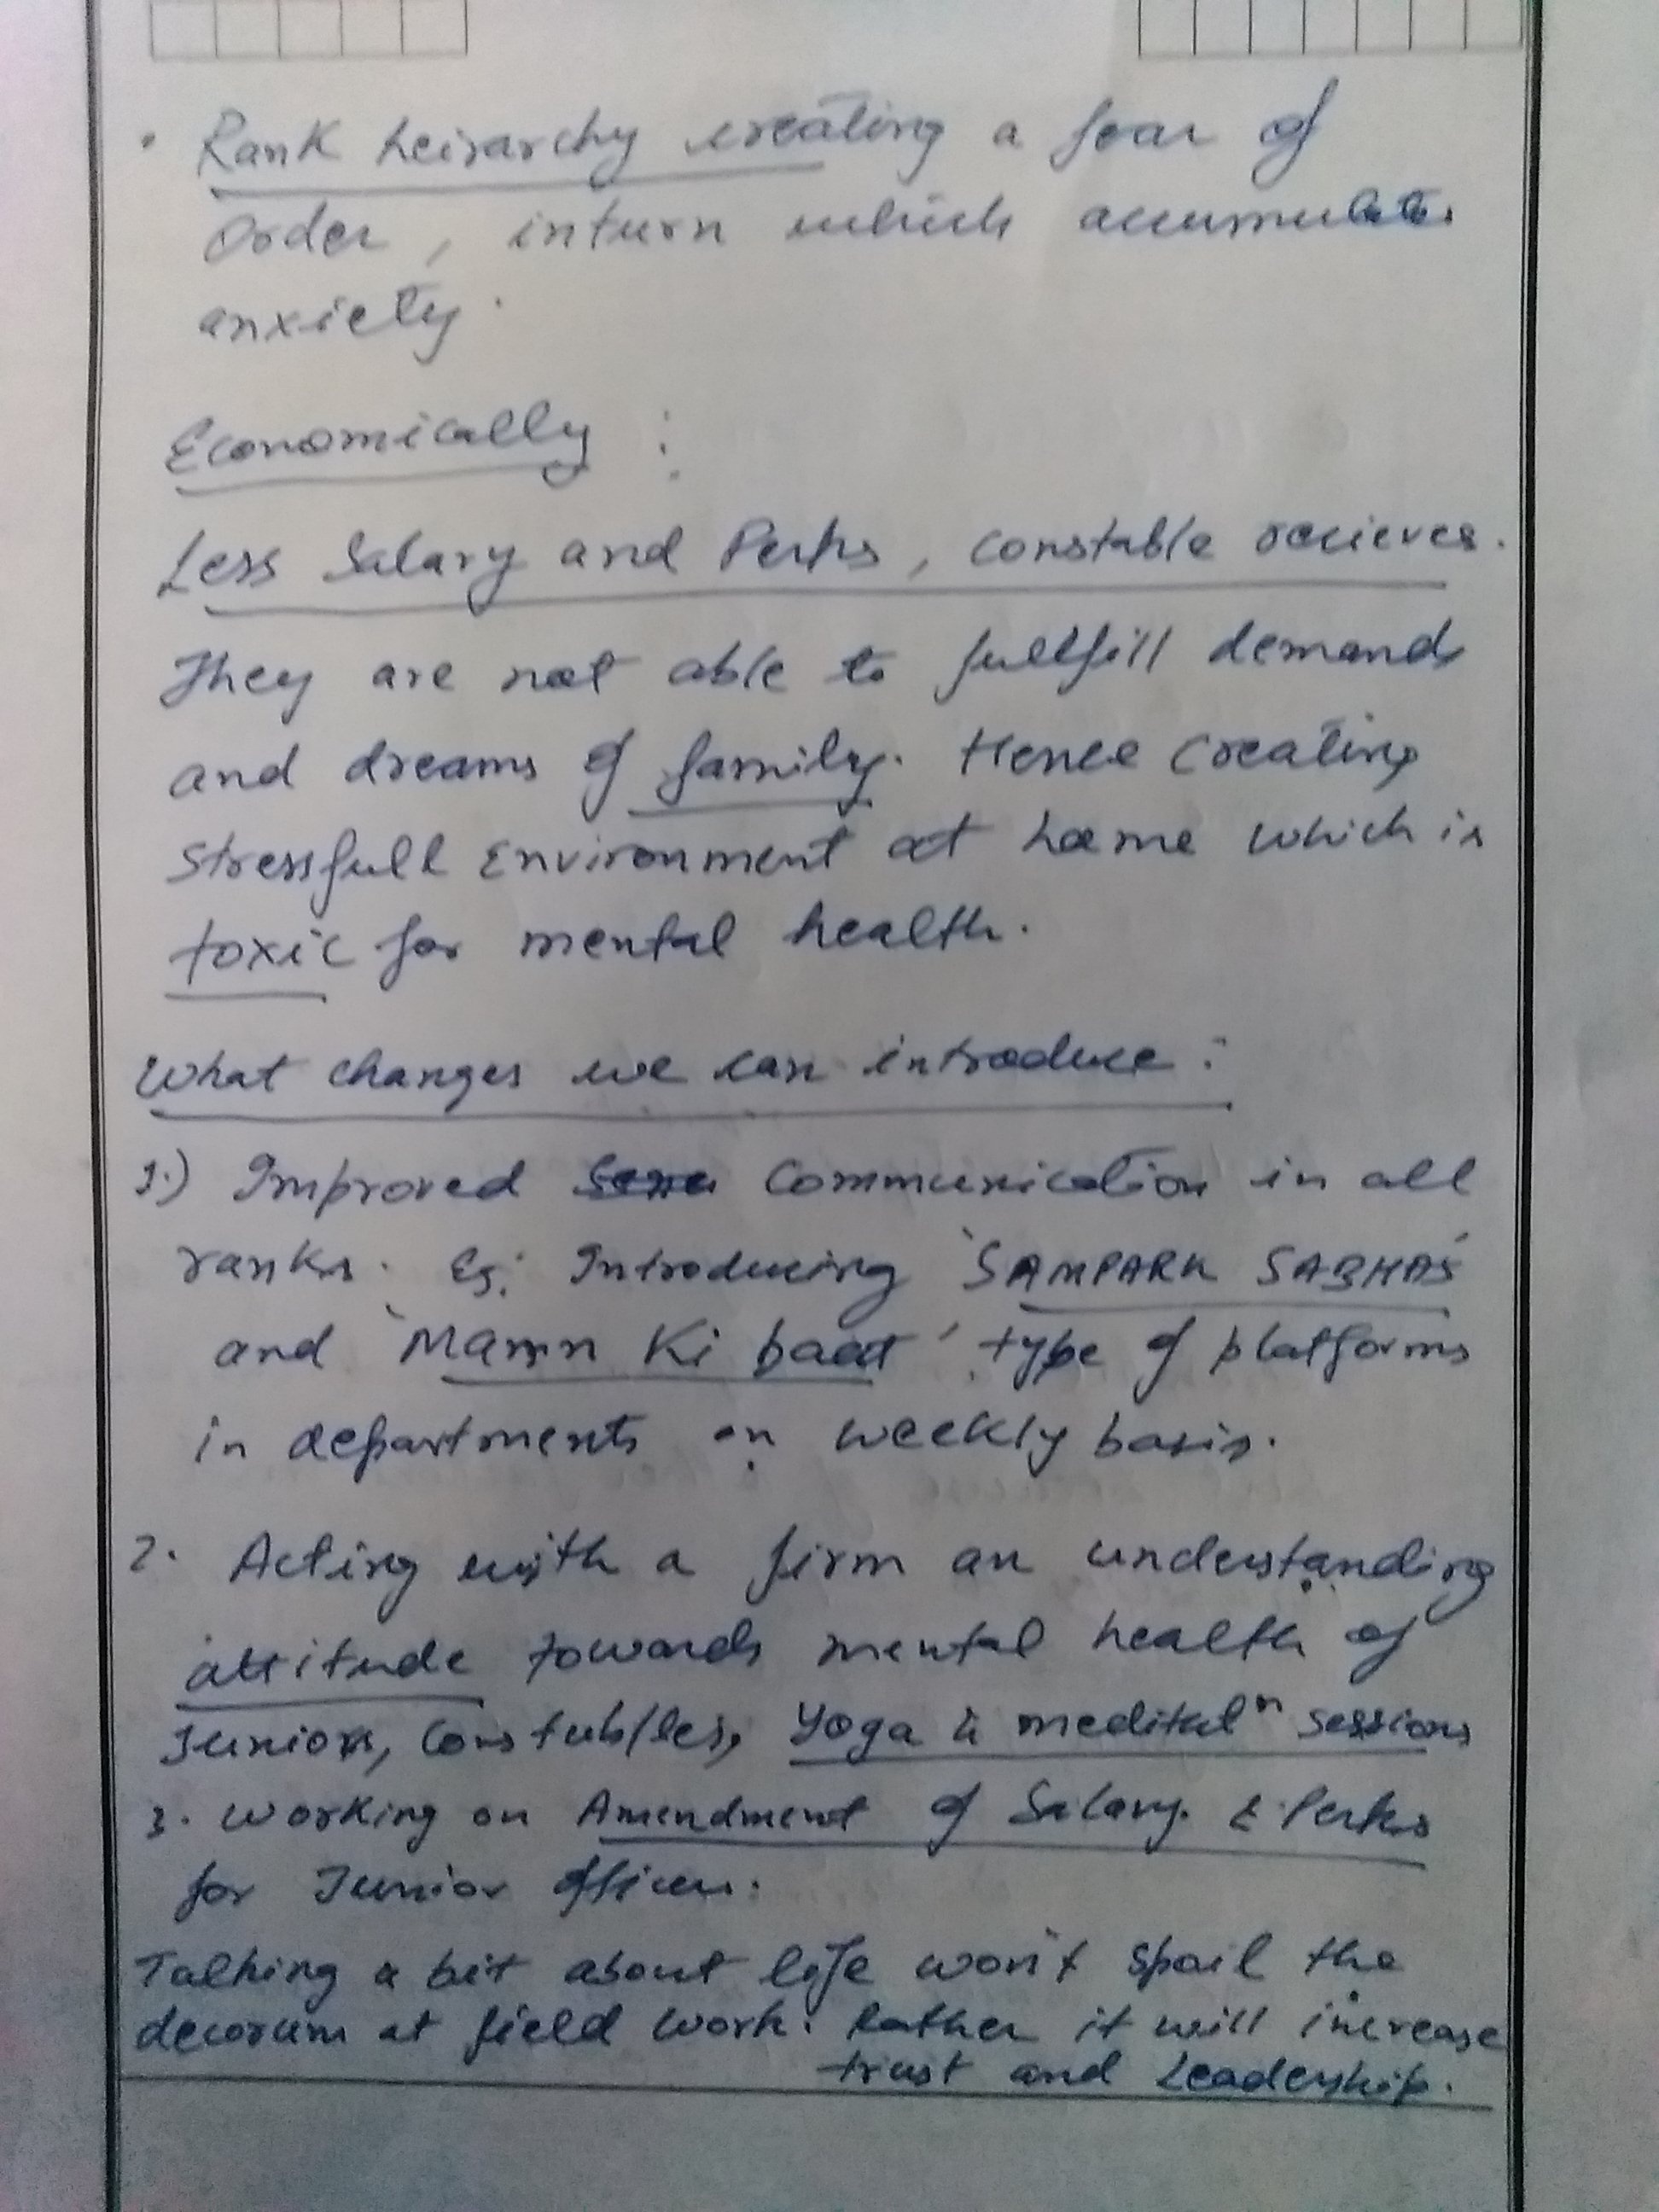 • Rank heirarchy creating a fear of
order, inturn which accumulates
anxiety.
Economically :
Less Salary and Perks, constable recieves.
They are not able to fullfill demands
and dreams of family. Hence Creating
Stressfull Environment at home which is
toxic for mental health.
What changes we can introduce :
1.) Improved Communication in all
ranks. Eg: Introducing 'SAMPARK SABHAS'
and 'Mann Ki baat' type of platforms
in departments on weekly basis.
2. Acting with a firm an understanding
attitude towards mental health of
Juniors, Constubles, Yoga & meditatⁿ sessions
3. Working on Amendment of Salary & Perks
for Junior officers.
Talking a bit about life won't spoil the
decorum at field work. Rather it will increase
trust and Leadership.